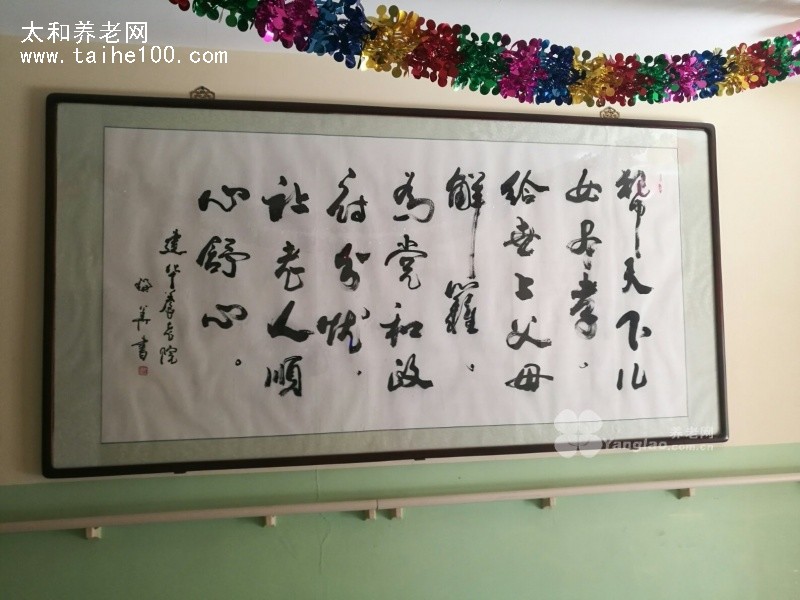 太和养老网
www.taihe100.com
帮天下儿
女尽孝。
给世上父母
解難。
为党和政
府分忧，
让老人順
心舒心。
建华养老院
书
养老网
Yanglao.com.cn